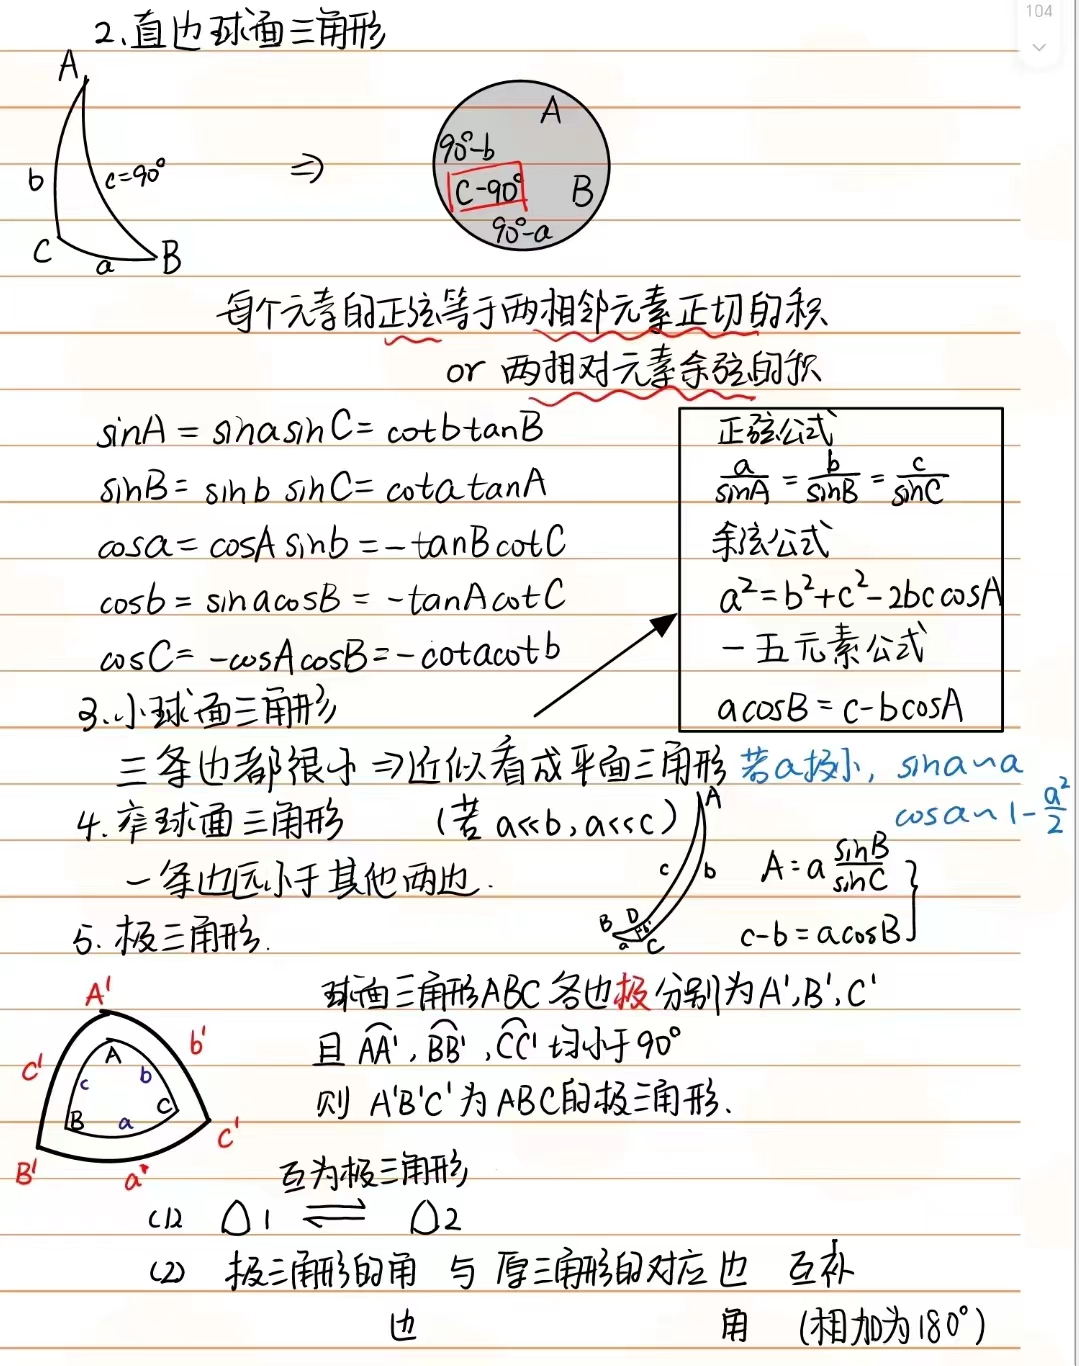 104
2、直边球面三角形
A
b
c=90°
C
a
B
⇒
A
90°-b
C-90°
B
90°-a
每个元素的正弦等于两相邻元素正切的积
or 两相对元素余弦的积
sinA = sinasinC = cotbtanB
sinB = sinb sinC = cotatanA
cosa = cosA sinb = -tanBcotC
cosb = sinacosB = -tanAcotC
cosC = -cosAcosB = -cotacotb
正弦公式
a/sinA = b/sinB = c/sinC
余弦公式
a²=b²+c²-2bccosA
一五元素公式
acosB = c-bcosA
3.小球面三角形
三条边都很小 ⇒近似看成平面三角形 若a极小, sina~a
cosa~1-a²/2
4.窄球面三角形 (若 a<<b, a<<c)
一条边远小于其他两边.
A
c
b
B
D
a
C
A=a sinB/sinC
c-b=acosB
5. 极三角形.
球面三角形ABC各边极分别为A',B',C'
且 AA', BB', CC' 均小于90°
则 A'B'C'为ABC的极三角形.
A'
b'
c'
A
c
b
B
a
C
B'
a'
C'
互为极三角形
(1) △1 ⇌ △2
(2) 极三角形的角 与 原三角形的对应边 互补
边 角 (相加为180°)